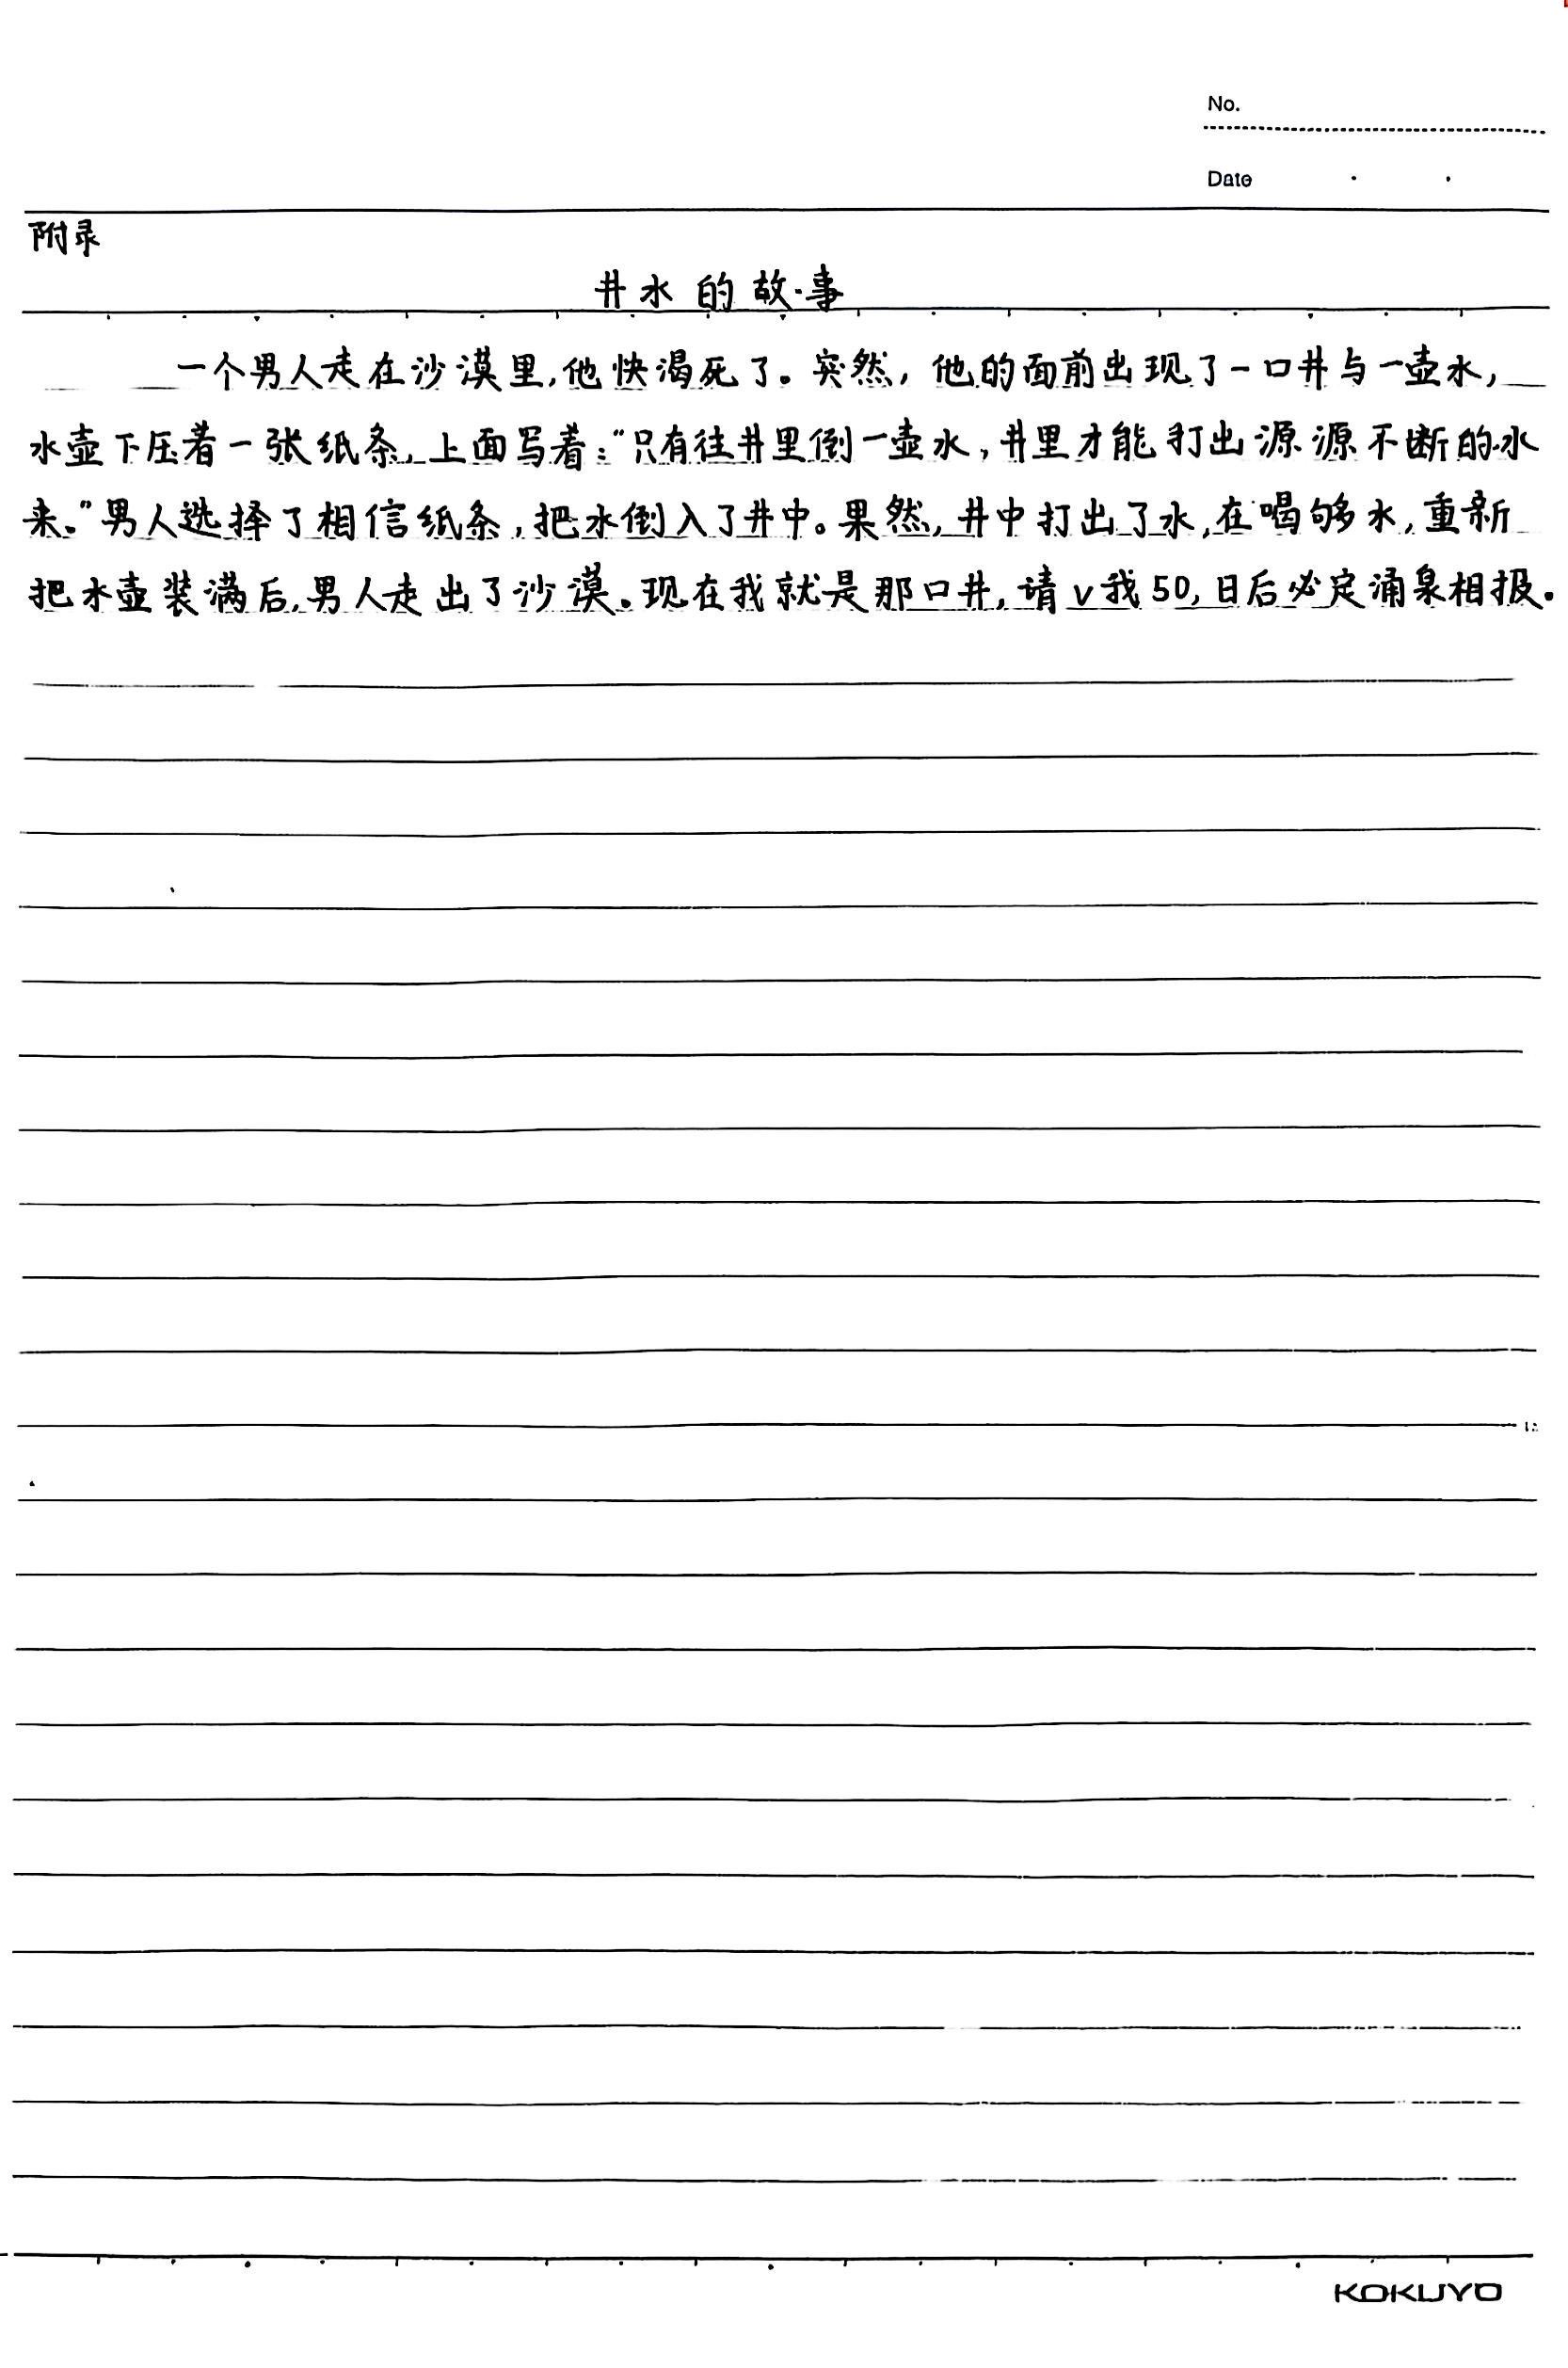 No.
Date
附录
井水的故事
一个男人走在沙漠里,他快渴死了。突然,他的面前出现了一口井与一壶水,
水壶下压着一张纸条,上面写着:“只有往井里倒一壶水,井里才能打出源源不断的水
来。”男人选择了相信纸条,把水倒入了井中。果然,井中打出了水,在喝够水,重新
把水壶装满后,男人走出了沙漠。现在我就是那口井,请v我50,日后必定涌泉相报。
KOKUYO